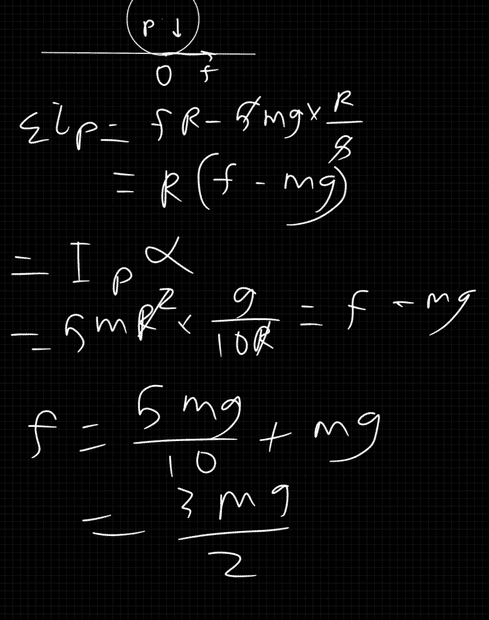 P ↓
O f
Στp = fR - 5mg × R/5
= R(f - mg)
= Ip α
= 5mR² × g/10R = f - mg
f = 5mg/10 + mg
= 3mg/2